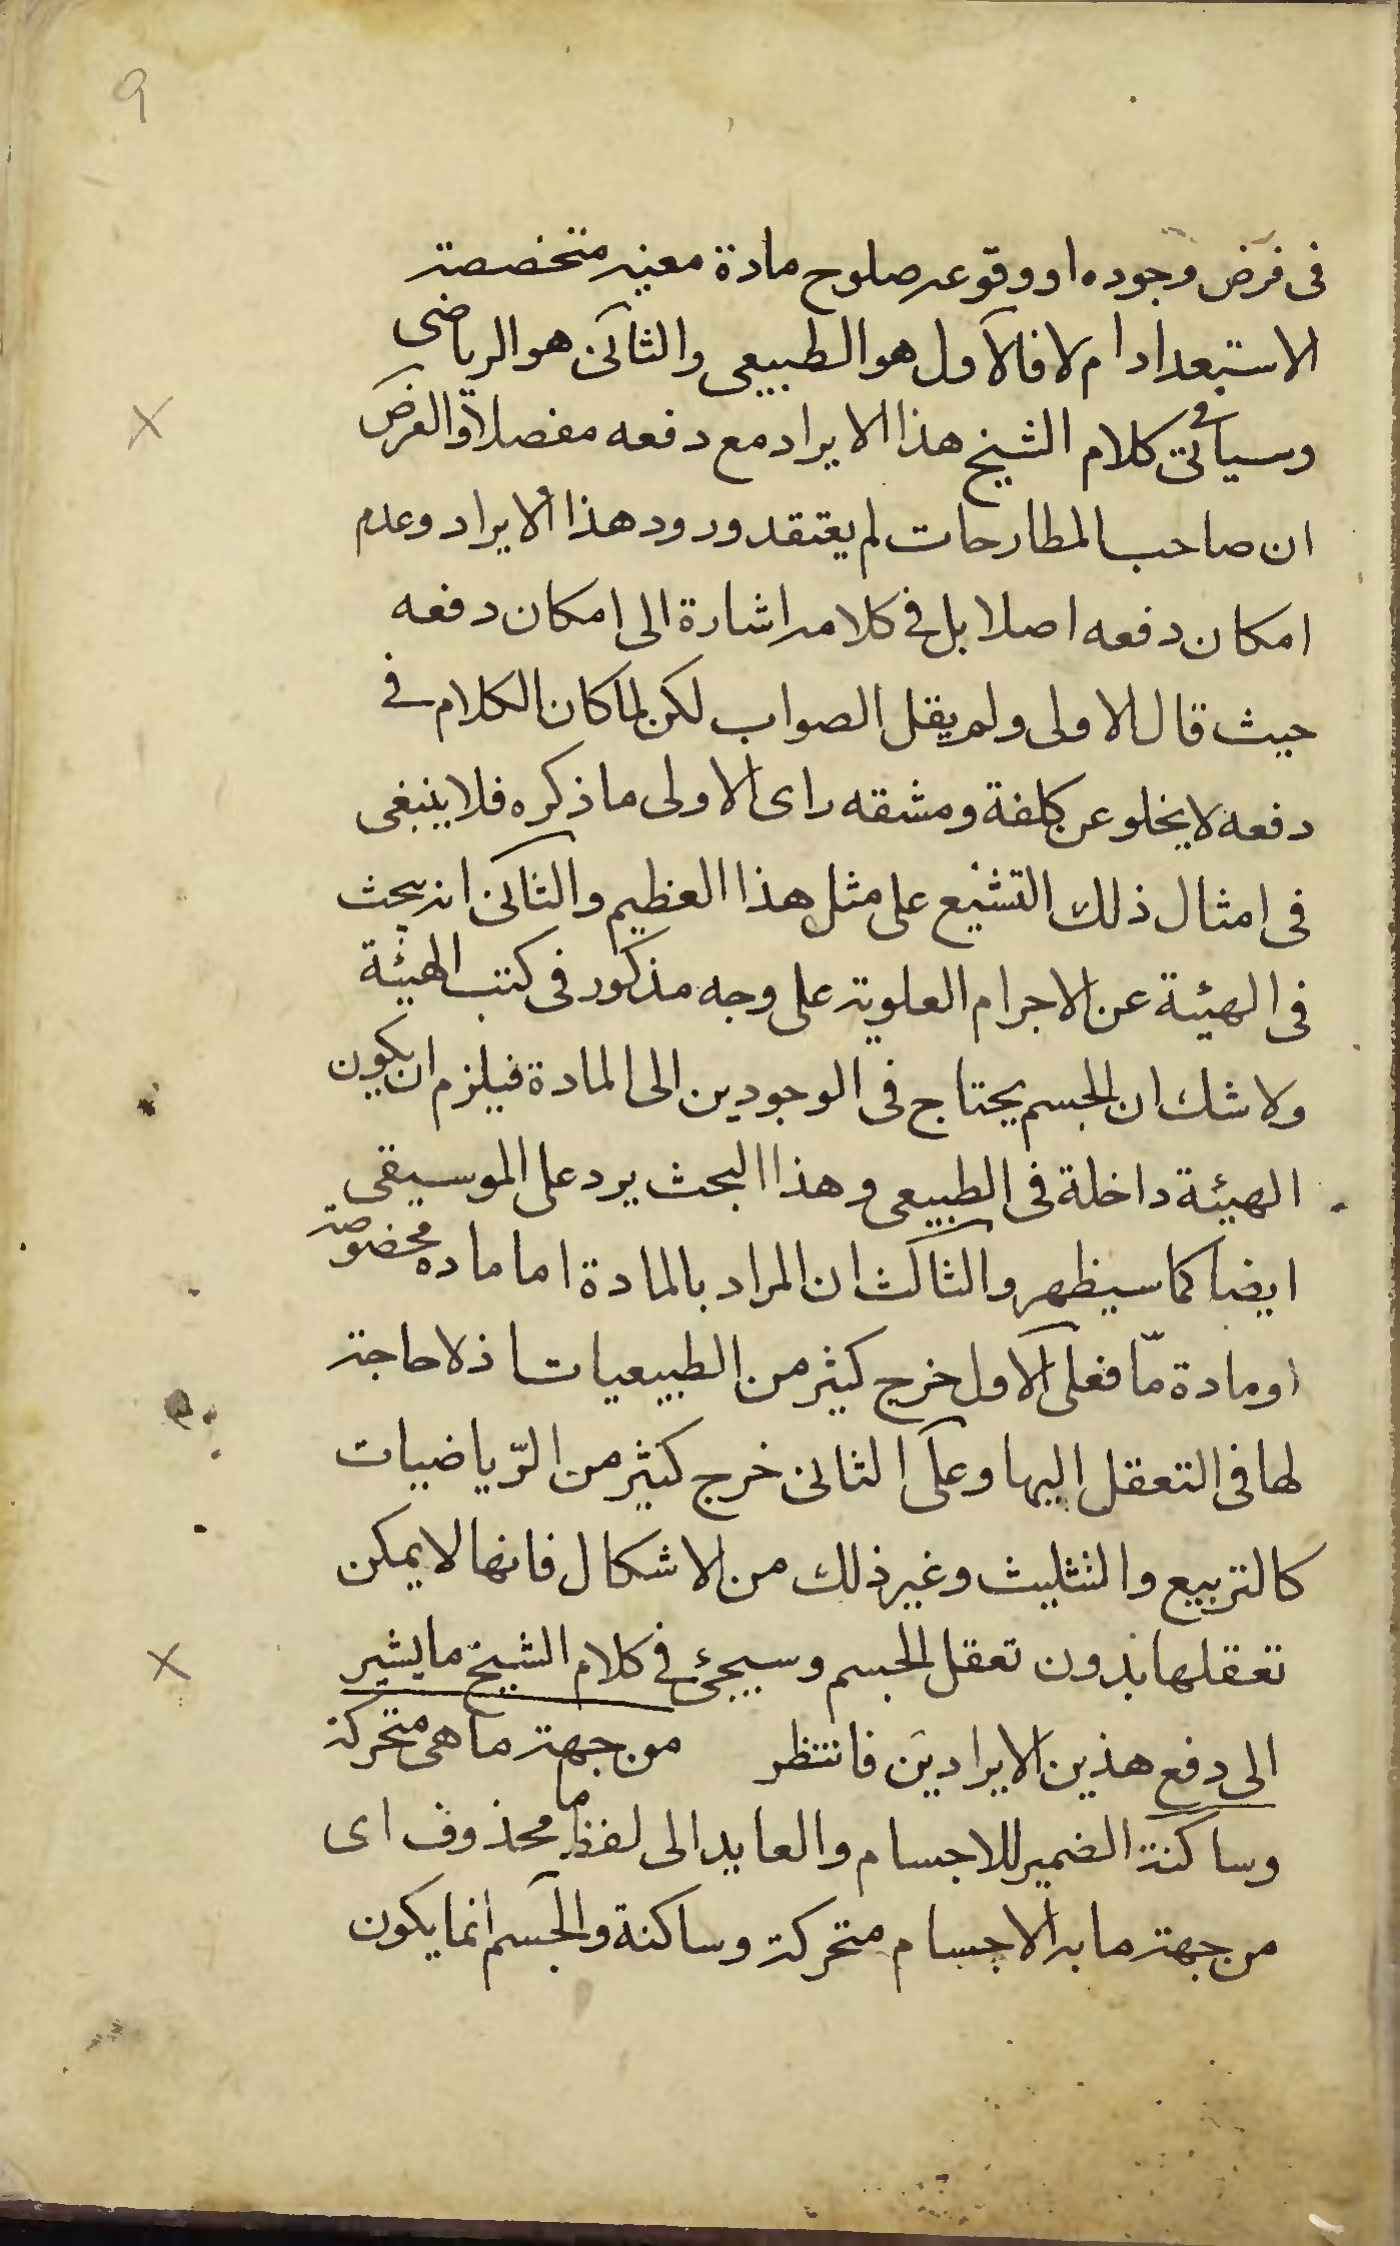 9
فى فرض وجوده او وقوعه صلوح مادة معينه متخصصة
الاستبعداد ام لا فالاول هو الطبيعى والثانى هو الرياضى
وسياتى فى كلام الشيخ هذا الايراد مع دفعه مفصلا والغرض
ان صاحب المطارحات لم يعتقد ورود هذا الايراد وعدم
امكان دفعه اصلا بل فى كلامه اشارة الى امكان دفعه
حيث قال الاولى ولم يقل الصواب لكن لما كان الكلام فى
دفعه لا يخلو عن كلفة ومشقه راى الاولى ما ذكره فلا ينبغى
فى امثال ذلك التشنيع على مثل هذا العظيم والثانى انه يبحث
فى الهيئة عن الاجرام العلوية على وجه مذكور فى كتب الهيئة
ولا شك ان الجسم يحتاج فى الوجودين الى المادة فيلزم ان يكون
الهيئة داخلة فى الطبيعى وهذا البحث يرد على الموسيقى
ايضا كما سيظهر والثالث ان المراد بالمادة اما ماده مخصوصة
او مادة مّا فعلى الاول خرج كثير من الطبيعيات اذ لا حاجة
لها فى التعقل اليها وعلى الثانى خرج كثير من الرّياضيات
كالتربيع والتثليث وغير ذلك من الاشكال فانها لا يمكن
تعقلها بدون تعقل الجسم وسيجئ فى كلام الشيخ ما يشير
الى دفع هذين الايرادين فانتظر من جهة ما هى متحركة
وساكنة الضمير للاجسام والعايد الى لفظ ما محذوف اى
من جهة ما به الاجسام متحركة وساكنة والجسم انما يكون